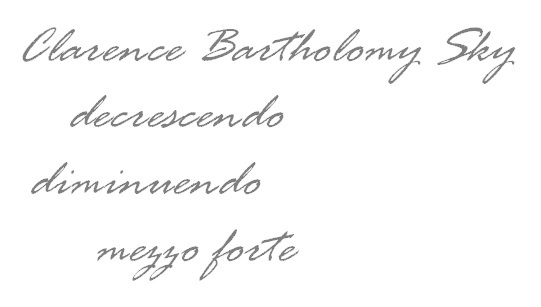 Clarence Bartholomy Sky
decrescendo
diminuendo
mezzo forte